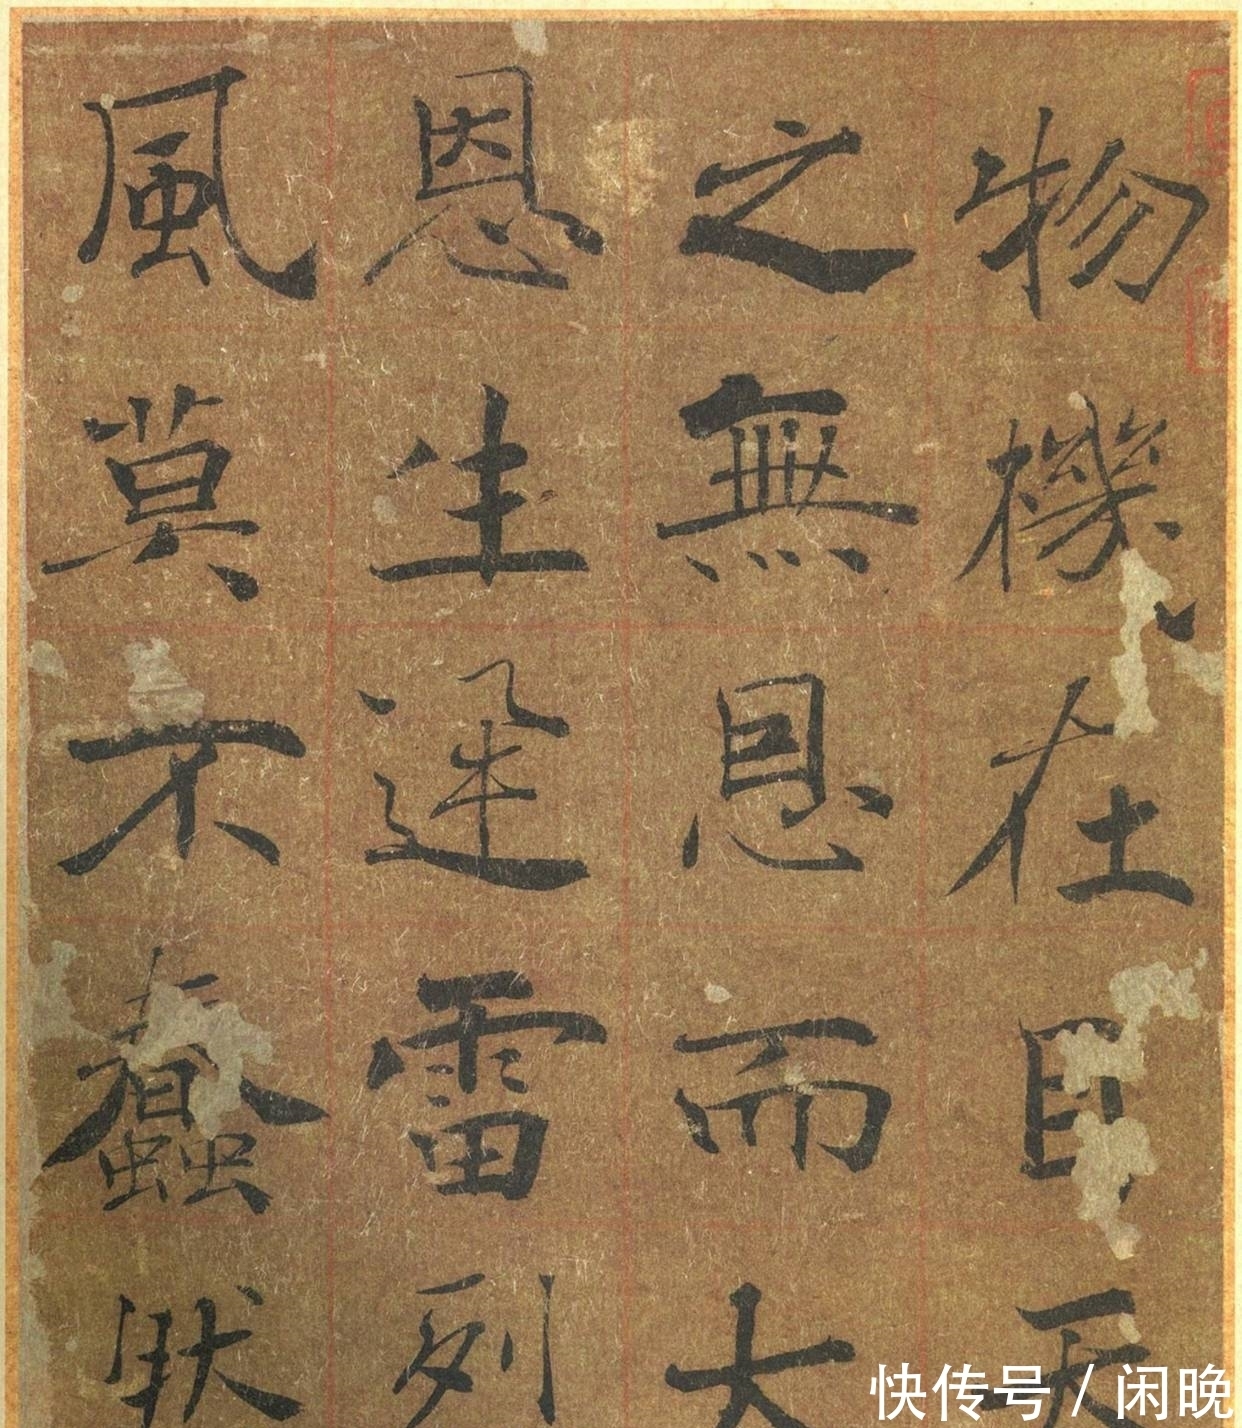 物機在目天
之無恩而大
恩生迅雷列
風莫不蠢然
快传号 / 闲晚